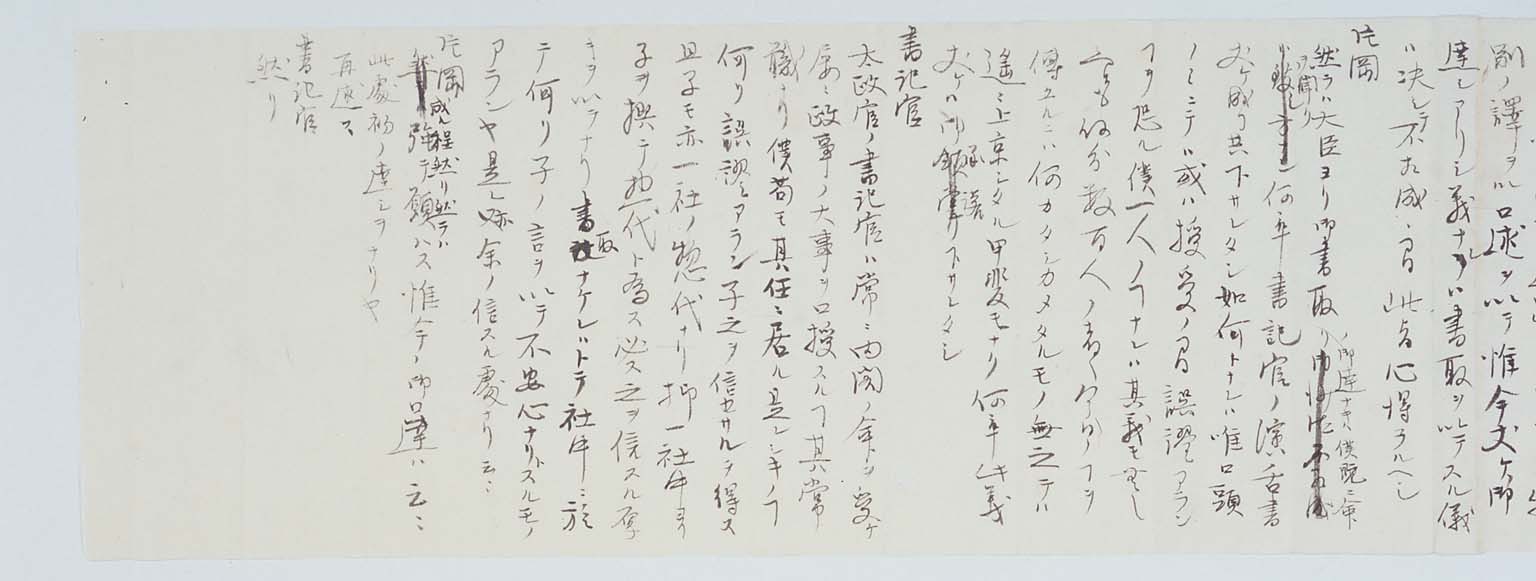 剛ノ譯ヲ以口述ヲ以テ惟今丈ケ御
達シアリシ義ナレハ書取ヲ以テスル儀
ハ决シテ不相成ニ付此旨心得ラルヘシ
片岡
然ラハ大臣ヨリ御書取リノ御達ナキハ僕既ニ命
ヲ聞ケリ何卒書記官ノ演舌書
丈ケ成リ共下サレタシ如何トナレハ唯口頭
ノミニテハ或ハ授受ノ間誤謬アラン
ヿヲ恐ル僕一人ノヿナレハ其義モ無シ
ト云モ何分数百人ノ者ヘ
傳フルニ何カタシカメタルモノ無之テハ
遙ニ上京シタル甲斐モナリ何卒此義
丈ケハ御承諾下サレタシ
書記官
太政官ノ書記官ハ常ニ内閣ノ命ヲ受ケ
屡ニ政事ノ大事ヲ口授スルヿ其常
職ナリ僕苟モ其任ニ居ル是シキノヿ
何ソ誤謬アラン子之ヲ信セサルヲ得ス
且子モ亦一社ノ惣代ナリ抑一社中ヨリ
子ヲ撰テ惣代ト為ス必ス之ヲ信スル厚
キヲ以テナリ書取ナケレハトテ社中ニ於
テ何ソ子ノ言ヲ以テ不安心ナリトスルモノ
アランヤ是レ余ノ信スル處ナリ云ニ
片岡
成程然リ然ラハ
強テ願ハス惟今ノ御口達ハ云ニ
此處初ノ達シヲ
再述ス
ナリヤ
書記官
然リ